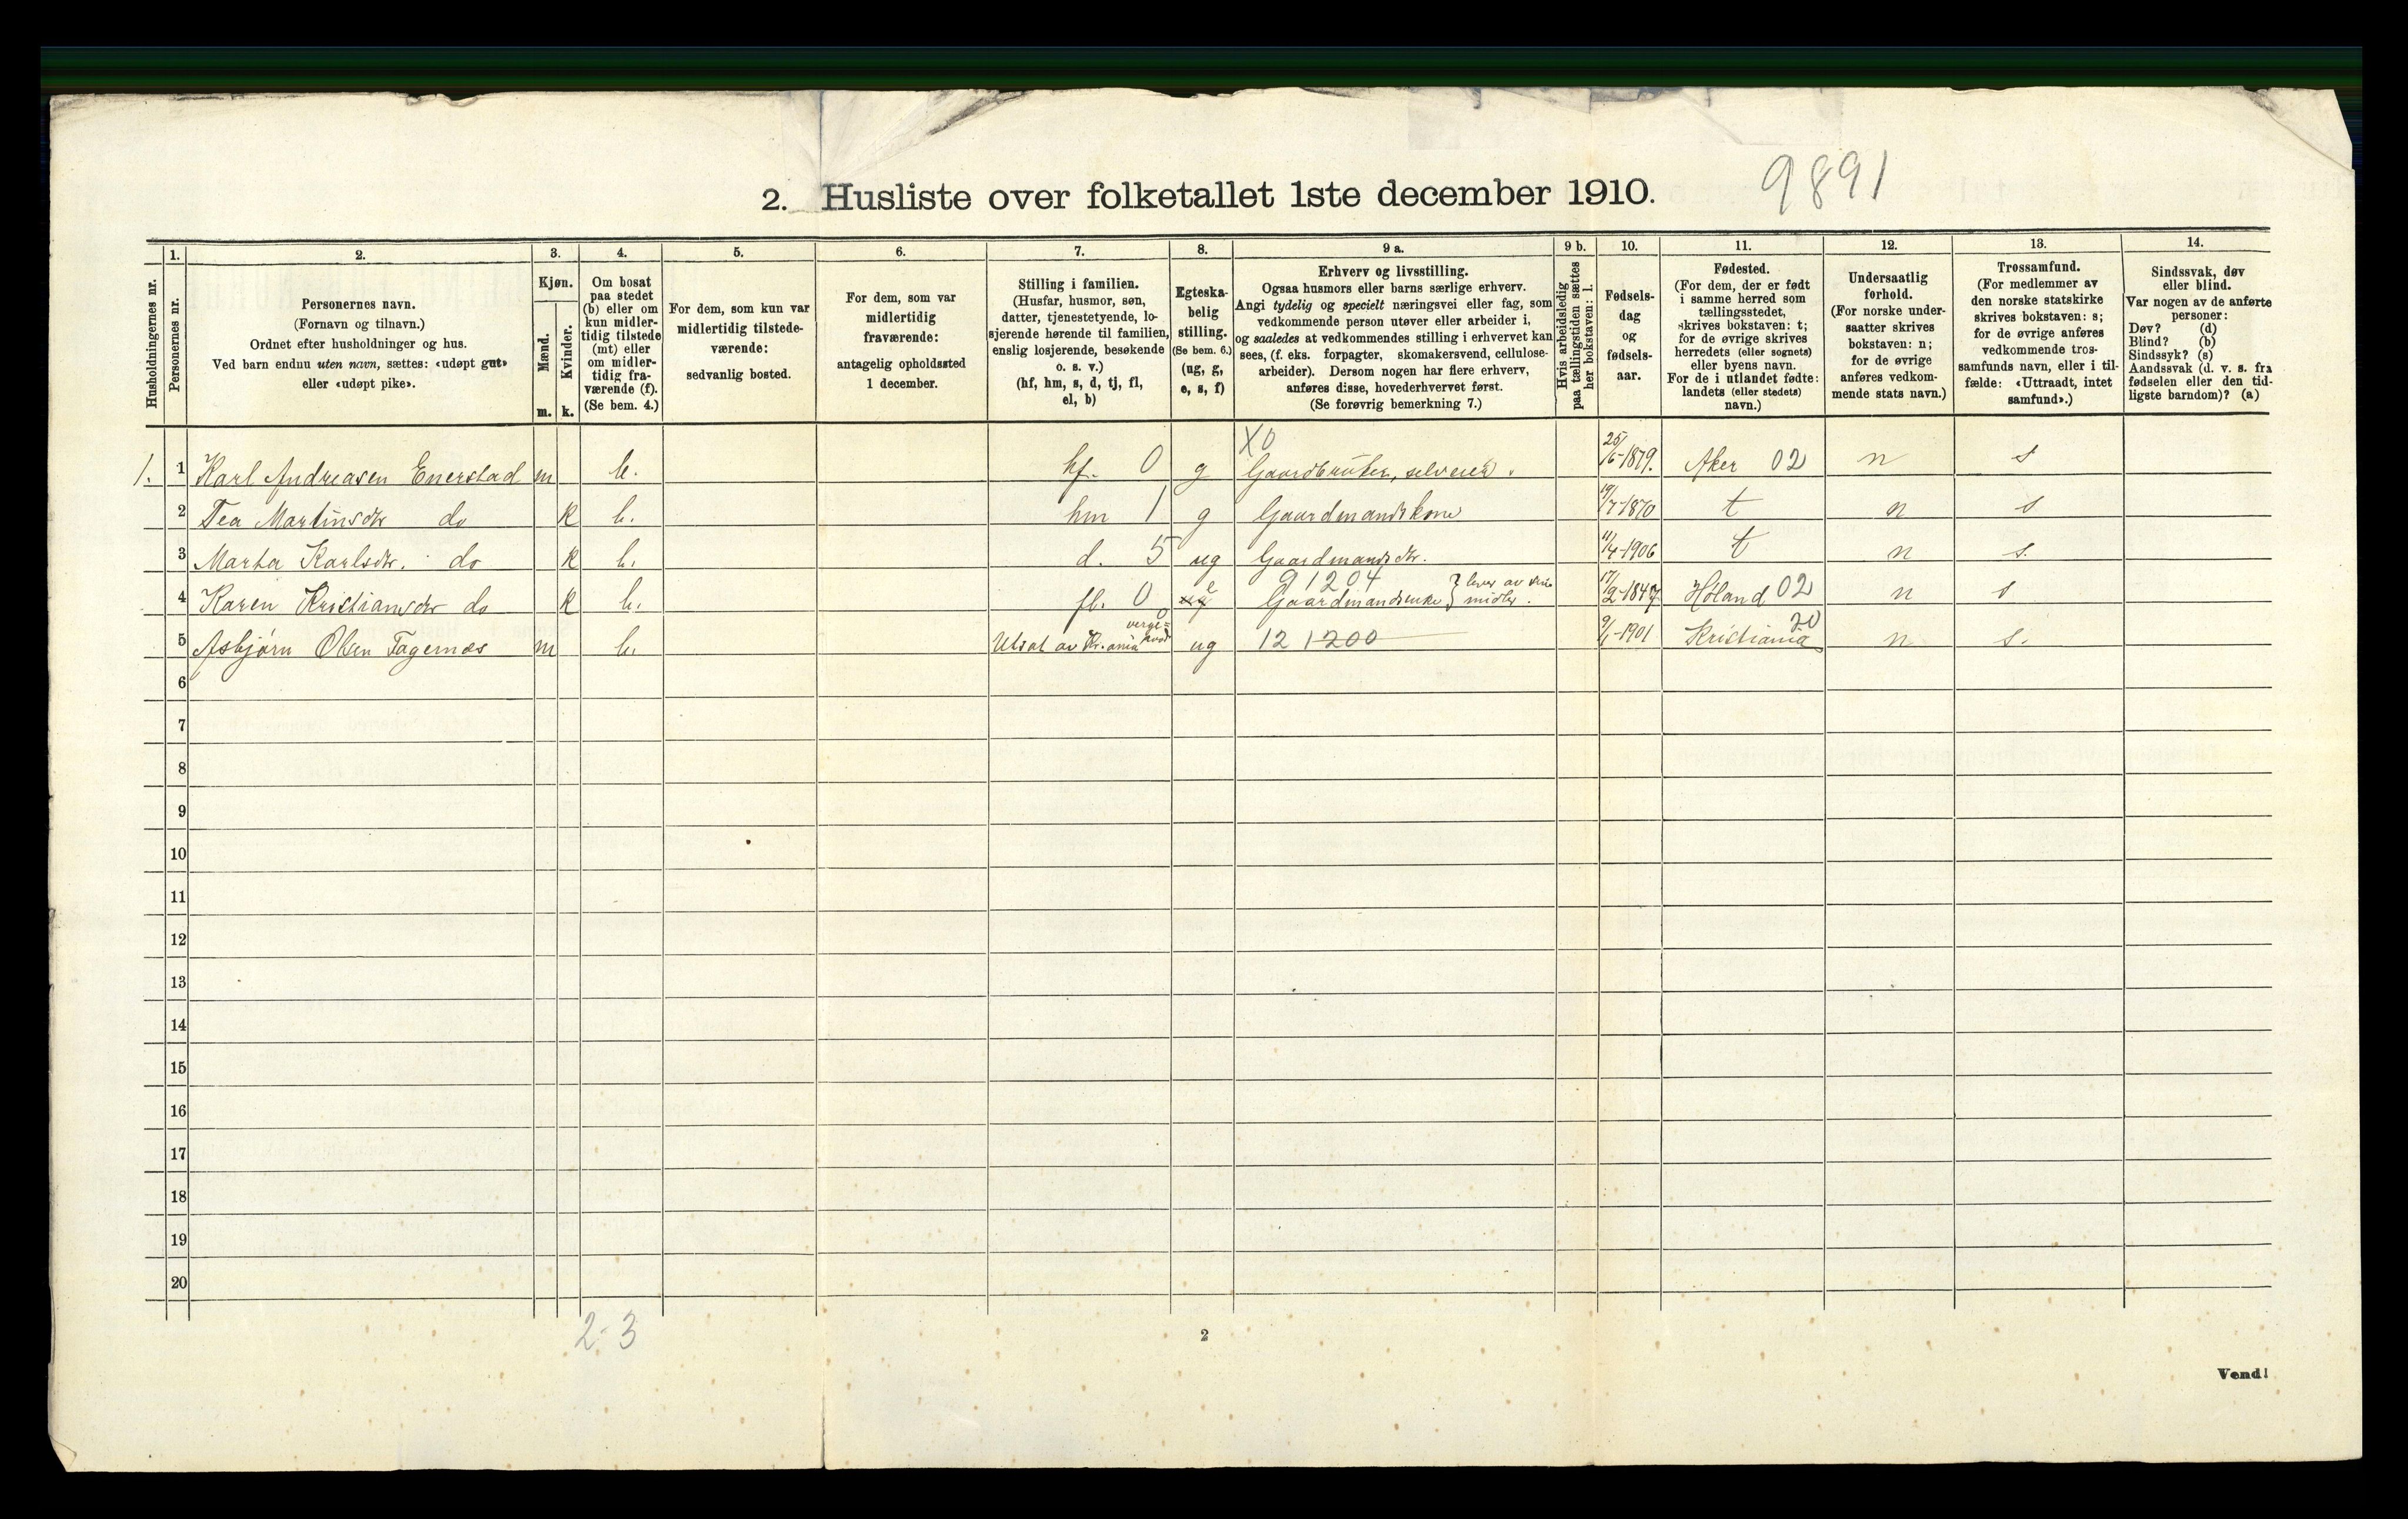 2. Husliste over folketallet 1ste december 1910.
9891
Husholdningernes nr.
1.
Personernes nr.
2.
Personernes navn.
(Fornavn og tilnavn.)
Ordnet efter husholdninger og hus.
Ved barn endnu uten navn, sættes: «udøpt gut»
eller «udøpt pike».
3.
Kjøn.
Mænd.
Kvinder.
m. k.
4.
Om bosat
paa stedet
(b) eller om
kun midler-
tidig tilstede
(mt) eller
om midler-
tidig fra-
værende (f).
(Se bem. 4.)
5.
For dem, som kun var
midlertidig tilstede-
værende:
sedvanlig bosted.
6.
For dem, som var
midlertidig
fraværende:
antagelig opholdssted
1 december.
7.
Stilling i familien.
(Husfar, husmor, søn,
datter, tjenestetyende, lo-
sjerende hørende til familien,
enslig losjerende, besøkende
o. s. v.)
(hf, hm, s, d, tj, fl,
el, b)
8.
Egteska-
belig
stilling.
(Se bem. 6.)
(ug, g,
e, s, f)
9 a.
Erhverv og livsstilling.
Ogsaa husmors eller barns særlige erhverv.
Angi tydelig og specielt næringsvei eller fag, som
vedkommende person utøver eller arbeider i,
og saaledes at vedkommendes stilling i erhvervet kan
sees, (f. eks. forpagter, skomakersvend, cellulose-
arbeider). Dersom nogen har flere erhverv,
anføres disse, hovederhvervet først.
(Se forøvrig bemerkning 7.)
9 b.
Hvis arbeidsledig
paa tællingstiden sættes
her bokstaven: l.
10.
Fødsels-
dag
og
fødsels-
aar.
11.
Fødested.
(For dem, der er født
i samme herred som
tællingsstedet,
skrives bokstaven: t;
for de øvrige skrives
herredets (eller sognets)
eller byens navn.
For de i utlandet fødte:
landets (eller stedets)
navn.)
12.
Undersaatlig
forhold.
(For norske under-
saatter skrives
bokstaven: n;
for de øvrige
anføres vedkom-
mende stats navn.)
13.
Trossamfund.
(For medlemmer av
den norske statskirke
skrives bokstaven: s;
for de øvrige anføres
vedkommende tros-
samfunds navn, eller i til-
fælde: «Uttraadt, intet
samfund».)
14.
Sindssvak, døv
eller blind.
Var nogen av de anførte
personer:
Døv? (d)
Blind? (b)
Sindssyk? (s)
Aandssvak (d. v. s. fra
fødselen eller den tid-
ligste barndom)? (a)
X0
1. 1 Karl Andreasen Enerstad m b. hf. 0 g Gaardbruker, selveier. 25/6-1879. Aker 02 n s
2 Tea Martinsdtr do k b. hm 1 g Gaardmandskone 19/7-1870 t n s
3 Marta Karlsdtr. do k b. d. 5 ug Gaardmandsdtr. 11/4-1906 t n s.
91204
4 Karen Kristiansdtr do k b. fl. 0 e Gaardmandsenke } lever av sine midler. 17/2-1847 Høland 02 n s
5 Asbjørn Olsen Fagernes m b. Utsat av Kr.ania verge= 0 ug 12 1200 9/1-1901 Kristiania 20 n s.
6
7
8
9
10
11
12
13
14
15
16
17
18
19
20
2-3
2
Vend!